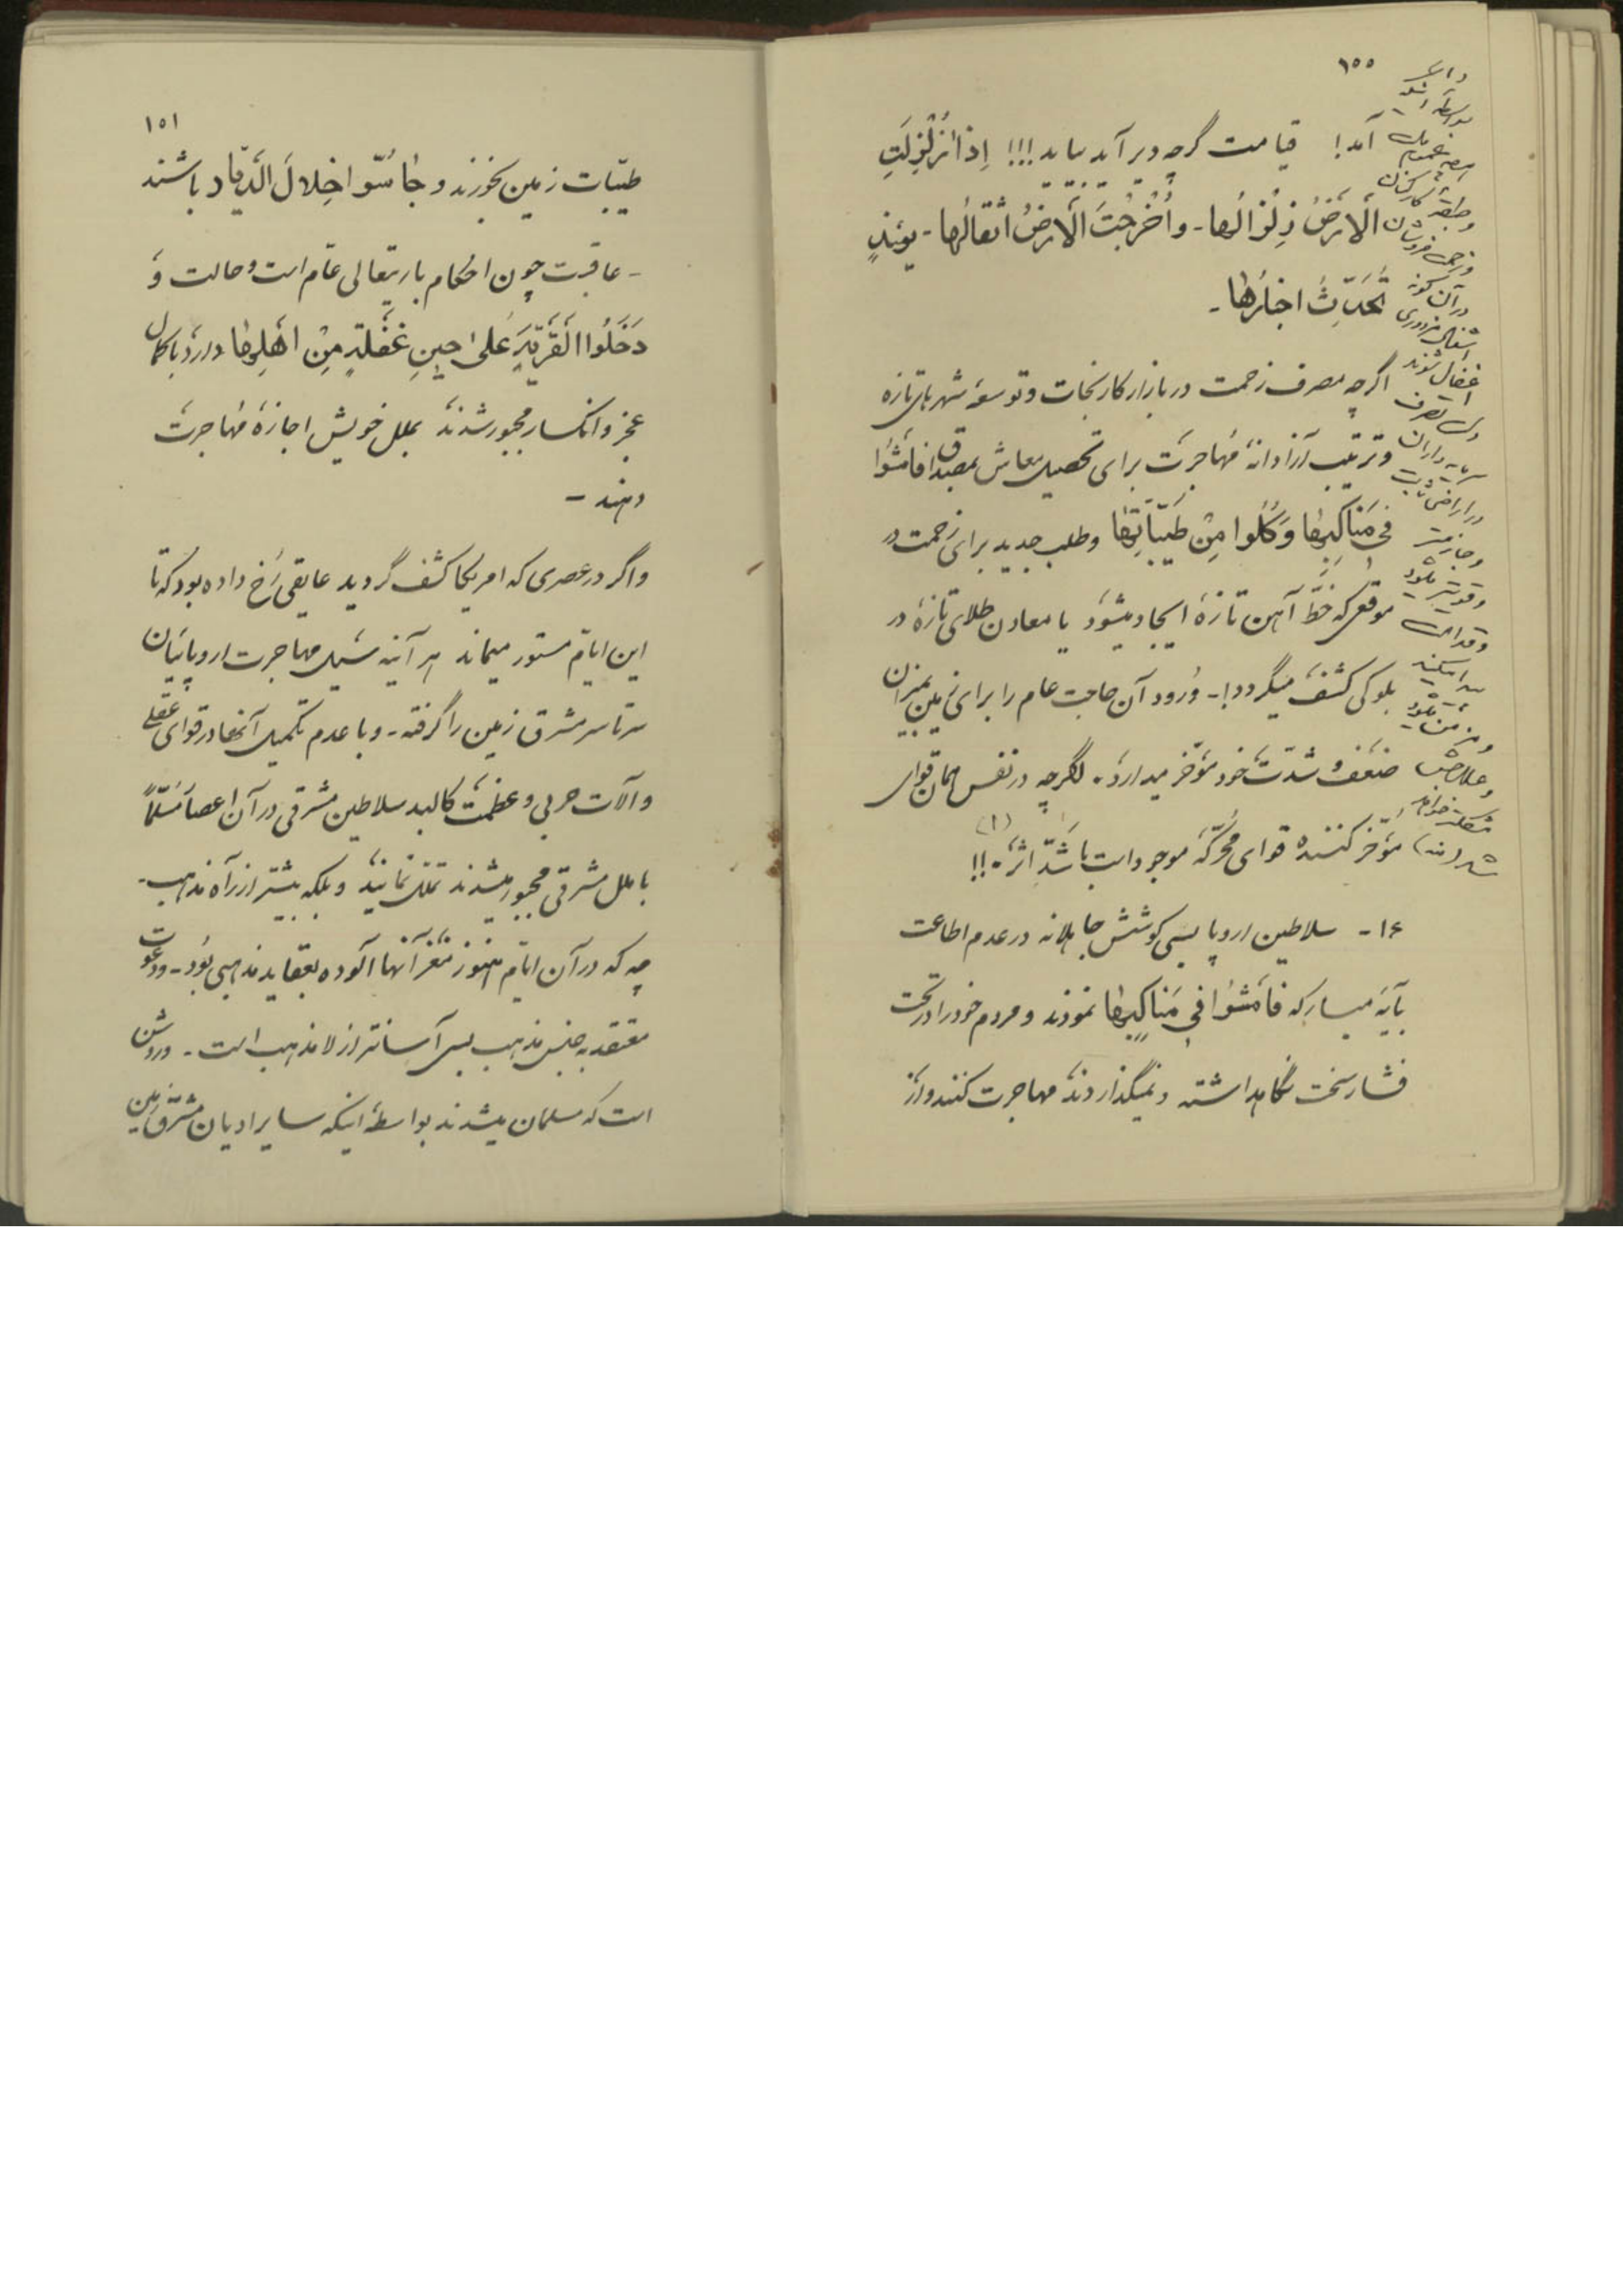 ۱۵۵
آمد! قیامت گرچه دیر آید بیاید!!! اِذا زُلْزِلَتِ
الْاَرْضُ زِلْزالَها - وَاُخْرِجَتَ الْاَرْضُ اَثْقالَها - یومئذٍ
تُحَدِّثُ اخبارَها -
اگرچه مصرف زحمت در بازار کارنجات و توسعهٔ شهرهای تازه
و ترتیب آزادانهٔ مُهاجرَت برای تحصیل معاش بمصداق فامْشُوا
فی مَناکِبِها وَ کُلُوا مِنْ طَیِّباتِها و طلب جدید برای زحمت در
موقعی که خطّ آهن تازهٔ ایجاد میشود یا معادن طلای تازهٔ در
بلوکی کشف میگردد! - وُرود آن حاجت عام را برای زمین بمیزان
ضعف و شدّت خود مؤخّر میدارد. لگرچه در نفس همان قوای
مؤخّر کننده قوای محرّکهٔ موجود است باَشَدِّ اثرٍ !! (۱)
۱۶ - سلاطین اروپا بسی کوشش جاهلانه در عدم اطاعت
بآیَه مبارکه فامْشُوا فی مَناکِبِها نمودند و مردم خود را در تحت
فشار سخت نگاهداشته و نمیگذاردند مهاجرت کنند و از
وطبقهٔ کارکنان
و زحمت فروشان
در آن گونه
اشغال مزدوری
سرمایه داران
در اراضی
۱۵۱
طیّبات زمین بخورند و جاسُوا خِلالَ الدِّیار باشند
- عاقبت چون احکام باریتعالی عام است و حالت وَ
دَخَلُوا الْقَرْیَةَ عَلیٰ حینِ غَفْلَةٍ مِنْ اَهْلِها دارد با کمال
عجز و انکسار مجبور شدند بملل خویش اجازهٔ مُهاجرت
دهند -
و اگر در عصری که امریکا کشف گردید عایقی رُخ داده بود که تا
این ایّام مستور میماند هر آینه سَیل مهاجرت اروپائیان
سرتاسر مشرق زمین را گرفته - و با عدم تکمیل آنها در قوای عقلی
و آلات حربی و عظمت کالبد سلاطین مشرقی در آن اعصار مُسَلّماً
با ملل مشرقی مجبور میشدند تملّق نمایند و بلکه بیشتر از راه مذهب -
چه که در آن ایّام هنوز مغز آنها آلوده بعقاید مذهبی بود - و دعوت
معتقد به جنس مذهب بس آسانتر از لامذهب است - و روشن
است که مسلمان میشدند بواسطهٔ اینکه سایر ادیان مشرق زمین